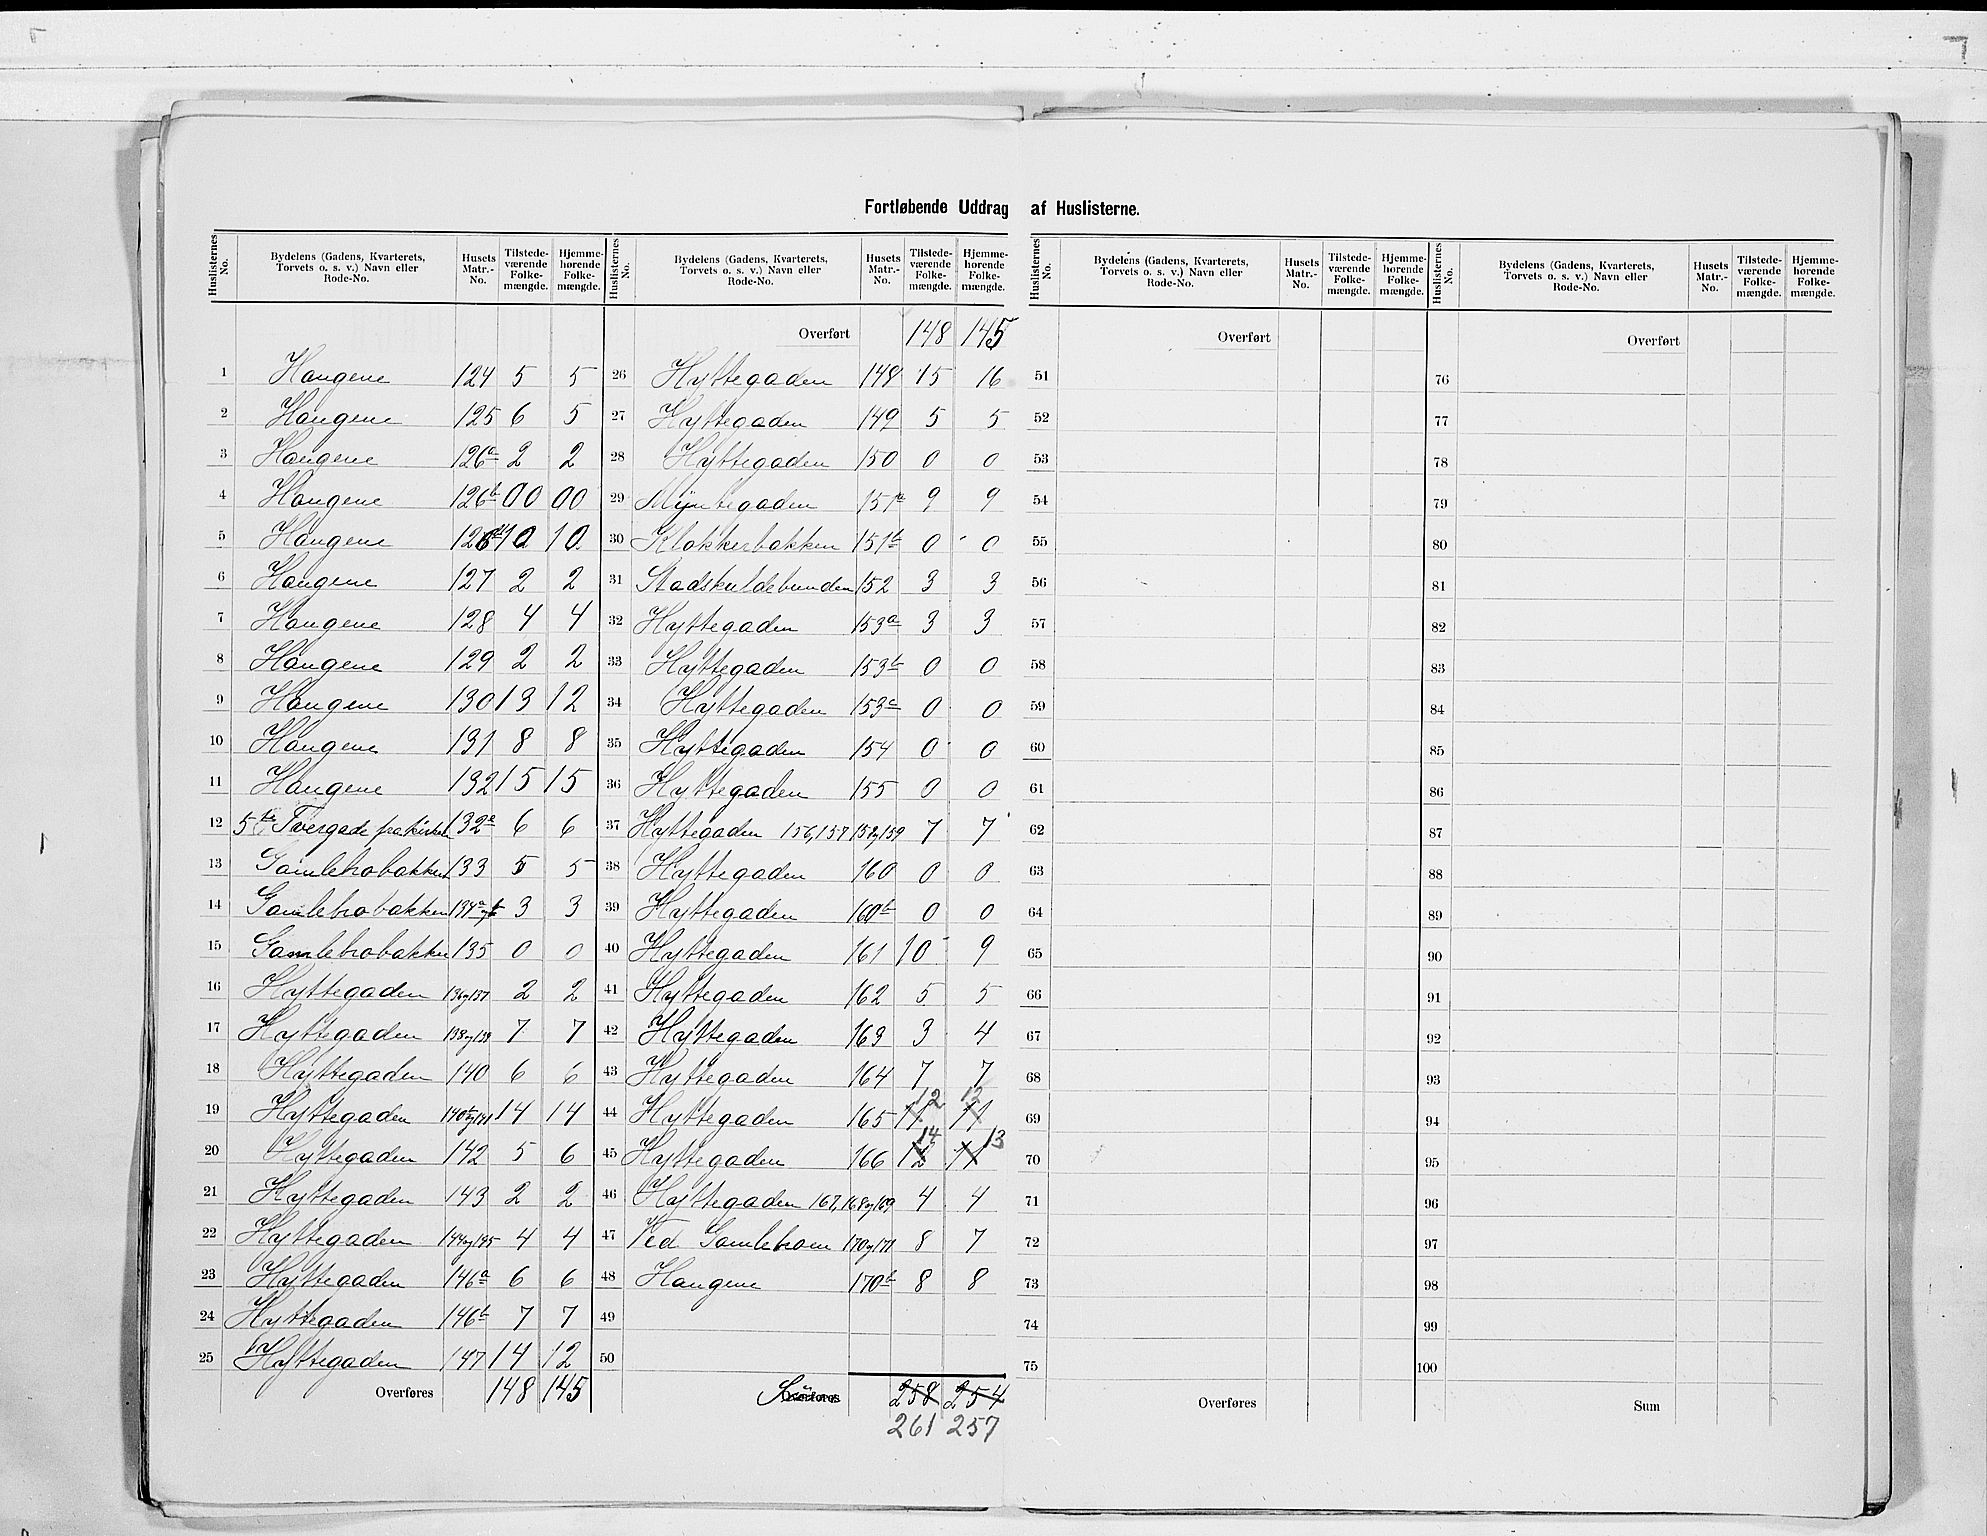 Fortløbende Uddrag af Huslisterne.
Huslisternes No. Bydelens (Gadens, Kvarterets, Torvets o. s. v.) Navn eller Rode-No. Husets Matr.-No. Tilstede-værende Folke-mængde. Hjemme-hørende Folke-mængde.
1 Haugene 124 5 5
2 Haugene 125 6 5
3 Haugene 126a 2 2
4 Haugene 126b 00 00
5 Haugene 10 10
6 Haugene 127 2 2
7 Haugene 128 4 4
8 Haugene 129 2 2
9 Haugene 130 13 12
10 Haugene 131 8 8
11 Haugene 132 15 15
12 5te Tvergade fra kirken 132a 6 6
13 Gamlebrobakken 133 5 5
14 Gamlebrobakken 134a og b 3 3
15 Gamlebrobakken 135 0 0
16 Hyttegaden 136 og 137 2 2
17 Hyttegaden 138 og 139 7 7
18 Hyttegaden 140 6 6
19 Hyttegaden 140b og 141 14 14
20 Hyttegaden 142 5 6
21 Hyttegaden 143 2 2
22 Hyttegaden 144 og 145 4 4
23 Hyttegaden 146a 6 6
24 Hyttegaden 146b 7 7
25 Hyttegaden 147 14 12
Overføres 148 145
Huslisternes No. Bydelens (Gadens, Kvarterets, Torvets o. s. v.) Navn eller Rode-No. Husets Matr.-No. Tilstede-værende Folke-mængde. Hjemme-hørende Folke-mængde.
Overført 148 145
26 Hyttegaden 148 15 16
27 Hyttegaden 149 5 5
28 Hyttegaden 150 0 0
29 Myntegaden 151a 9 9
30 Klokkerbakken 151b 0 0
31 Stadskuldebunden 152 3 3
32 Hyttegaden 153a 3 3
33 Hyttegaden 153b 0 0
34 Hyttegaden 153c 0 0
35 Hyttegaden 154 0 0
36 Hyttegaden 155 0 0
37 Hyttegaden 156, 157 158 og 159 7 7
38 Hyttegaden 160 0 0
39 Hyttegaden 160b 0 0
40 Hyttegaden 161 10 9
41 Hyttegaden 162 5 5
42 Hyttegaden 163 3 4
43 Hyttegaden 164 7 7
12 12
44 Hyttegaden 165 11 11
14 13
45 Hyttegaden 166 12 11
46 Hyttegaden 167, 168 og 169 4 4
47 Ved Gamlebroen 170 og 171 8 7
48 Haugene 170b 8 8
49
50
Overføres 258 254
261 257
Huslisternes No. Bydelens (Gadens, Kvarterets, Torvets o. s. v.) Navn eller Rode-No. Husets Matr.-No. Tilstede-værende Folke-mængde. Hjemme-hørende Folke-mængde.
Overført
51
52
53
54
55
56
57
58
59
60
61
62
63
64
65
66
67
68
69
70
71
72
73
74
75
Overføres
Huslisternes No. Bydelens (Gadens, Kvarterets, Torvets o. s. v.) Navn eller Rode-No. Husets Matr.-No. Tilstede-værende Folke-mængde. Hjemme-hørende Folke-mængde.
Overført
76
77
78
79
80
81
82
83
84
85
86
87
88
89
90
91
92
93
94
95
96
97
98
99
100
Sum